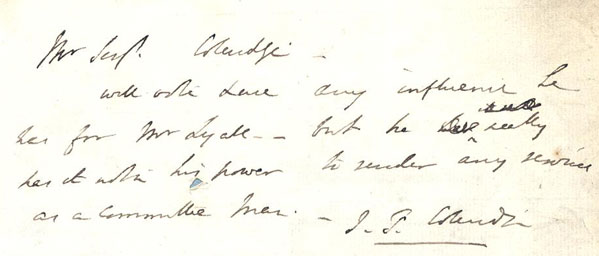 Mr Serjt. Coleridge –
will use any influence he
has for Mr Lyall – – but he really
has it not in his power to render any service
as a Committee Man. –
J. T. Coleridge